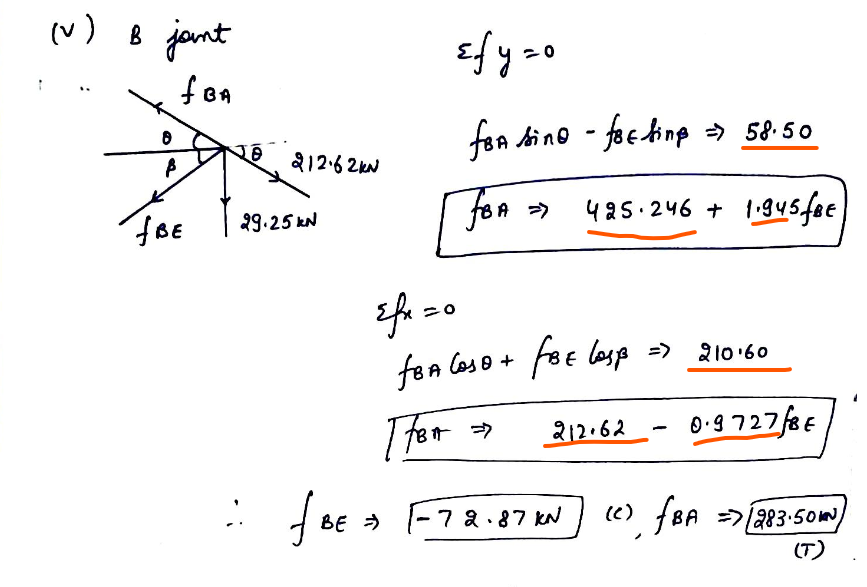 (V) B joint
Σfy=0
fBA
θ
β
θ
212.62kN
fBE
29.25 kN
fBA sinθ - fBE sinβ ⇒ 58.50
fBA ⇒ 425.246 + 1.945fBE
Σfx=0
fBA Cosθ + fBE Cosβ ⇒ 210.60
fBA ⇒ 212.62 - 0.9727fBE
∴ fBE ⇒ -72.87 kN (C), fBA ⇒ 283.50kN
(T)